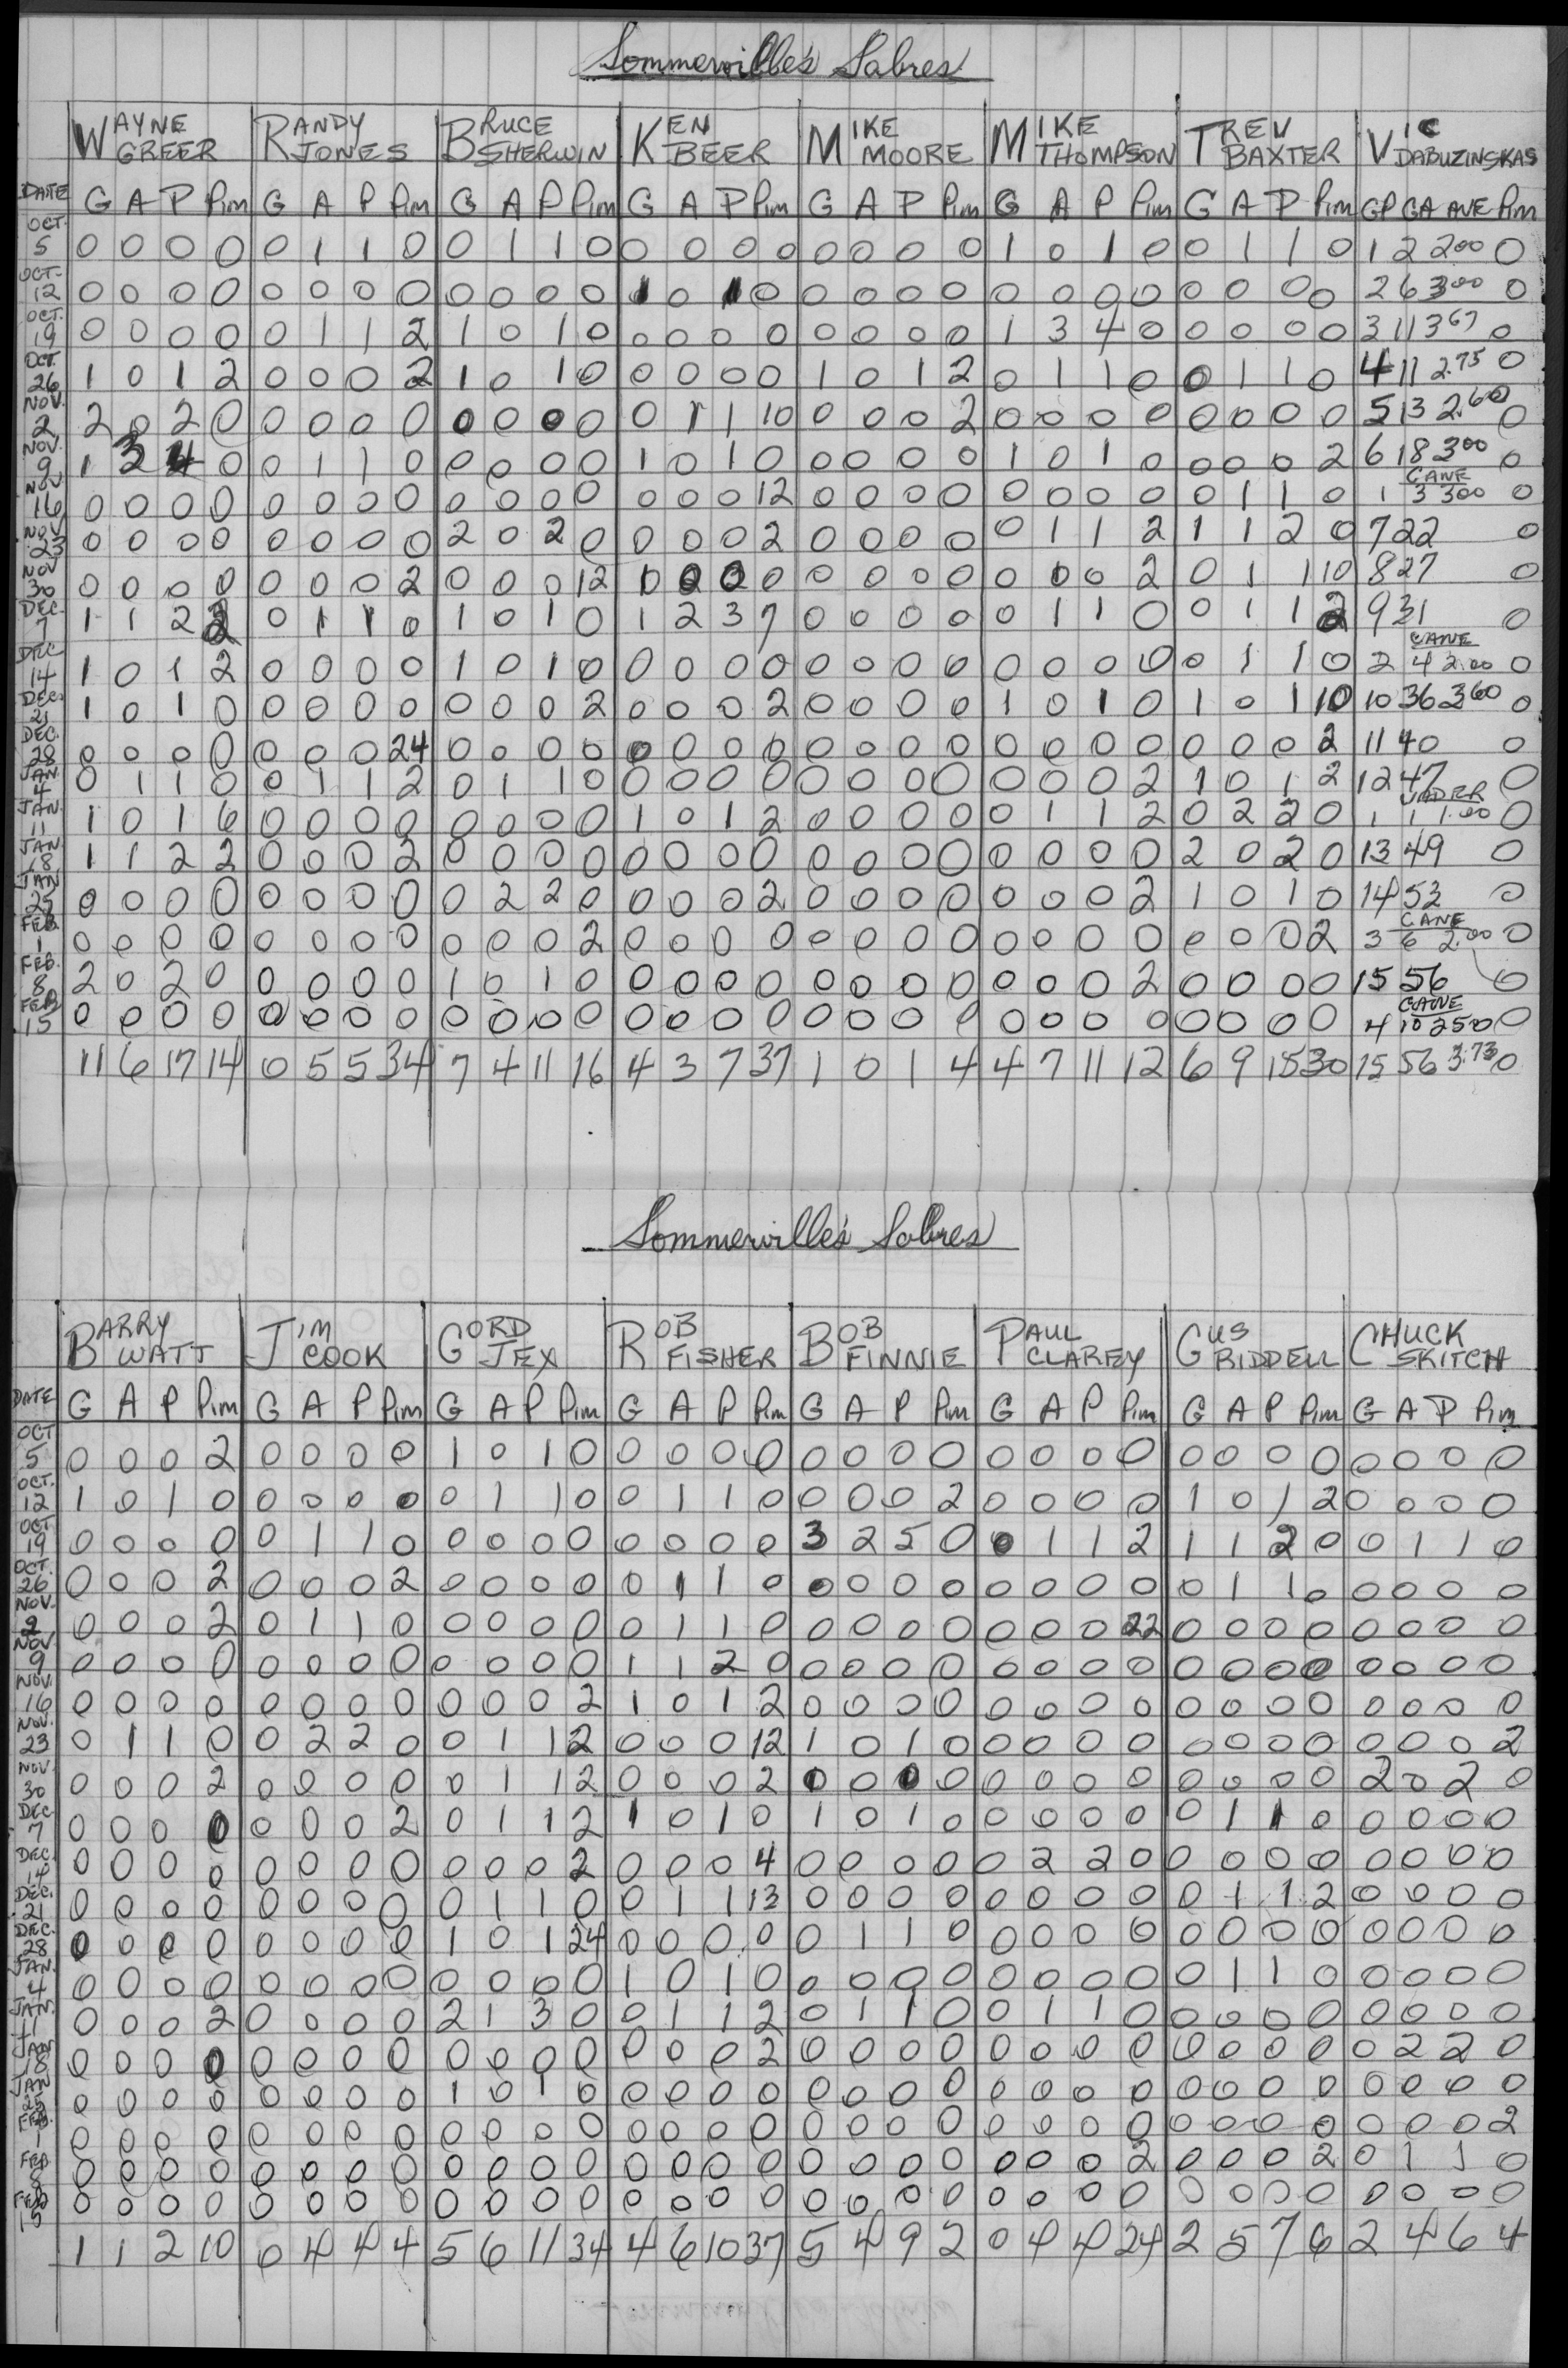 Sommerville's Sabres
WAYNE GREER RANDY JONES BRUCE SHERWIN KEN BEER MIKE MOORE MIKE THOMPSON TREV BAXTER VIC DABUZINSKAS
DATE G A P Pim G A P Pim G A P Pim G A P Pim G A P Pim G A P Pim G A P Pim GP GA AVE Pim
OCT. 5 0 0 0 0 0 1 1 0 0 1 1 0 0 0 0 0 0 0 0 0 1 0 1 0 0 1 1 0 1 2 2.00 0
OCT. 12 0 0 0 0 0 0 0 0 0 0 0 0 1 0 1 0 0 0 0 0 0 0 0 0 0 0 0 0 2 6 3.00 0
OCT. 19 0 0 0 0 0 1 1 2 1 0 1 0 0 0 0 0 0 0 0 0 1 3 4 0 0 0 0 0 3 11 3.67 0
OCT. 26 1 0 1 2 0 0 0 2 1 0 1 0 0 0 0 0 1 0 1 2 0 1 1 0 0 1 1 0 4 11 2.75 0
NOV. 2 2 0 2 0 0 0 0 0 0 0 0 0 0 1 1 10 0 0 0 2 0 0 0 0 0 0 0 0 5 13 2.60 0
NOV. 9 1 3 4 0 0 1 1 0 0 0 0 0 1 0 1 0 0 0 0 0 1 0 1 0 0 0 0 2 6 18 3.00 0
NOV 16 0 0 0 0 0 0 0 0 0 0 0 0 0 0 0 12 0 0 0 0 0 0 0 0 0 1 1 0 CANE 1 3 3.00 0
NOV 23 0 0 0 0 0 0 0 0 2 0 2 0 0 0 0 2 0 0 0 0 0 1 1 2 1 1 2 0 7 22 0
NOV 30 0 0 0 0 0 0 0 2 0 0 0 12 1 0 0 0 0 0 0 0 0 0 0 2 0 1 1 10 8 27 0
DEC. 7 1 1 2 2 0 1 1 0 1 0 1 0 1 2 3 7 0 0 0 0 0 1 1 0 0 1 1 2 9 31 0
DEC 14 1 0 1 2 0 0 0 0 1 0 1 0 0 0 0 0 0 0 0 0 0 0 0 0 0 1 1 0 CANE 2 4 2.00 0
DEC. 21 1 0 1 0 0 0 0 0 0 0 0 2 0 0 0 2 0 0 0 0 1 0 1 0 1 0 1 10 10 36 3.60 0
DEC. 28 0 0 0 0 0 0 0 24 0 0 0 0 0 0 0 0 0 0 0 0 0 0 0 0 0 0 0 2 11 40 0
JAN. 4 0 1 1 0 0 1 1 2 0 1 1 0 0 0 0 0 0 0 0 0 0 0 0 2 1 0 1 2 12 47 0
JAN. 11 1 0 1 6 0 0 0 0 0 0 0 0 1 0 1 2 0 0 0 0 0 1 1 2 0 2 2 0 1 1 1.00 0
JAN 18 1 1 2 2 0 0 0 2 0 0 0 0 0 0 0 0 0 0 0 0 0 0 0 0 2 0 2 0 13 49 0
JAN 25 0 0 0 0 0 0 0 0 0 2 2 0 0 0 0 2 0 0 0 0 0 0 0 2 1 0 1 0 14 53 0
FEB 1 0 0 0 0 0 0 0 0 0 0 0 2 0 0 0 0 0 0 0 0 0 0 0 0 0 0 0 2 CANE 3 6 2.00 0
FEB. 8 2 0 2 0 0 0 0 0 1 0 1 0 0 0 0 0 0 0 0 0 0 0 0 2 0 0 0 0 15 56 0
FEB 15 0 0 0 0 0 0 0 0 0 0 0 0 0 0 0 0 0 0 0 0 0 0 0 0 0 0 0 0 CANE 4 10 2.50 0
11 6 17 14 0 5 5 34 7 4 11 16 4 3 7 37 1 0 1 4 4 7 11 12 6 9 15 30 15 56 3.73 0
Sommerville's Sabres
BARRY WATT JIM COOK GORD JEX ROB FISHER BOB FINNIE PAUL CLAREY GUS RIDDELL CHUCK SKITCH
DATE G A P Pim G A P Pim G A P Pim G A P Pim G A P Pim G A P Pim G A P Pim G A P Pim
OCT 5 0 0 0 2 0 0 0 0 1 0 1 0 0 0 0 0 0 0 0 0 0 0 0 0 0 0 0 0 0 0 0 0
OCT. 12 1 0 1 0 0 0 0 0 0 1 1 0 0 1 1 0 0 0 0 2 0 0 0 0 1 0 1 2 0 0 0 0
OCT 19 0 0 0 0 0 1 1 0 0 0 0 0 0 0 0 0 3 2 5 0 0 1 1 2 1 1 2 0 0 1 1 0
OCT. 26 0 0 0 2 0 0 0 2 0 0 0 0 0 1 1 0 0 0 0 0 0 0 0 0 0 1 1 0 0 0 0 0
NOV. 2 0 0 0 2 0 1 1 0 0 0 0 0 0 1 1 0 0 0 0 0 0 0 0 22 0 0 0 0 0 0 0 0
NOV. 9 0 0 0 0 0 0 0 0 0 0 0 0 1 1 2 0 0 0 0 0 0 0 0 0 0 0 0 0 0 0 0 0
NOV. 16 0 0 0 0 0 0 0 0 0 0 0 2 1 0 1 2 0 0 0 0 0 0 0 0 0 0 0 0 0 0 0 0
NOV. 23 0 1 1 0 0 2 2 0 0 1 1 2 0 0 0 12 1 0 1 0 0 0 0 0 0 0 0 0 0 0 0 2
NOV. 30 0 0 0 2 0 0 0 0 0 1 1 2 0 0 0 2 0 0 0 0 0 0 0 0 0 0 0 0 2 0 2 0
DEC 7 0 0 0 0 0 0 0 2 0 1 1 2 1 0 1 0 1 0 1 0 0 0 0 0 0 1 1 0 0 0 0 0
DEC. 14 0 0 0 0 0 0 0 0 0 0 0 2 0 0 0 4 0 0 0 0 0 2 2 0 0 0 0 0 0 0 0 0
DEC. 21 0 0 0 0 0 0 0 0 0 1 1 0 0 1 1 13 0 0 0 0 0 0 0 0 0 1 1 2 0 0 0 0
DEC. 28 0 0 0 0 0 0 0 0 1 0 1 24 0 0 0 0 0 1 1 0 0 0 0 0 0 0 0 0 0 0 0 0
JAN. 4 0 0 0 0 0 0 0 0 0 0 0 0 1 0 1 0 0 0 0 0 0 0 0 0 0 1 1 0 0 0 0 0
JAN. 11 0 0 0 2 0 0 0 0 2 1 3 0 0 1 1 2 0 1 1 0 0 1 1 0 0 0 0 0 0 0 0 0
JAN 18 0 0 0 0 0 0 0 0 0 0 0 0 0 0 0 2 0 0 0 0 0 0 0 0 0 0 0 0 0 2 2 0
JAN 25 0 0 0 0 0 0 0 0 1 0 1 0 0 0 0 0 0 0 0 0 0 0 0 0 0 0 0 0 0 0 0 0
FEB. 1 0 0 0 0 0 0 0 0 0 0 0 0 0 0 0 0 0 0 0 0 0 0 0 0 0 0 0 0 0 0 0 2
FEB. 8 0 0 0 0 0 0 0 0 0 0 0 0 0 0 0 0 0 0 0 0 0 0 0 2 0 0 0 2 0 1 1 0
FEB 15 0 0 0 0 0 0 0 0 0 0 0 0 0 0 0 0 0 0 0 0 0 0 0 0 0 0 0 0 0 0 0 0
1 1 2 10 0 4 4 4 5 6 11 34 4 6 10 37 5 4 9 2 0 4 4 24 2 5 7 6 2 4 6 4